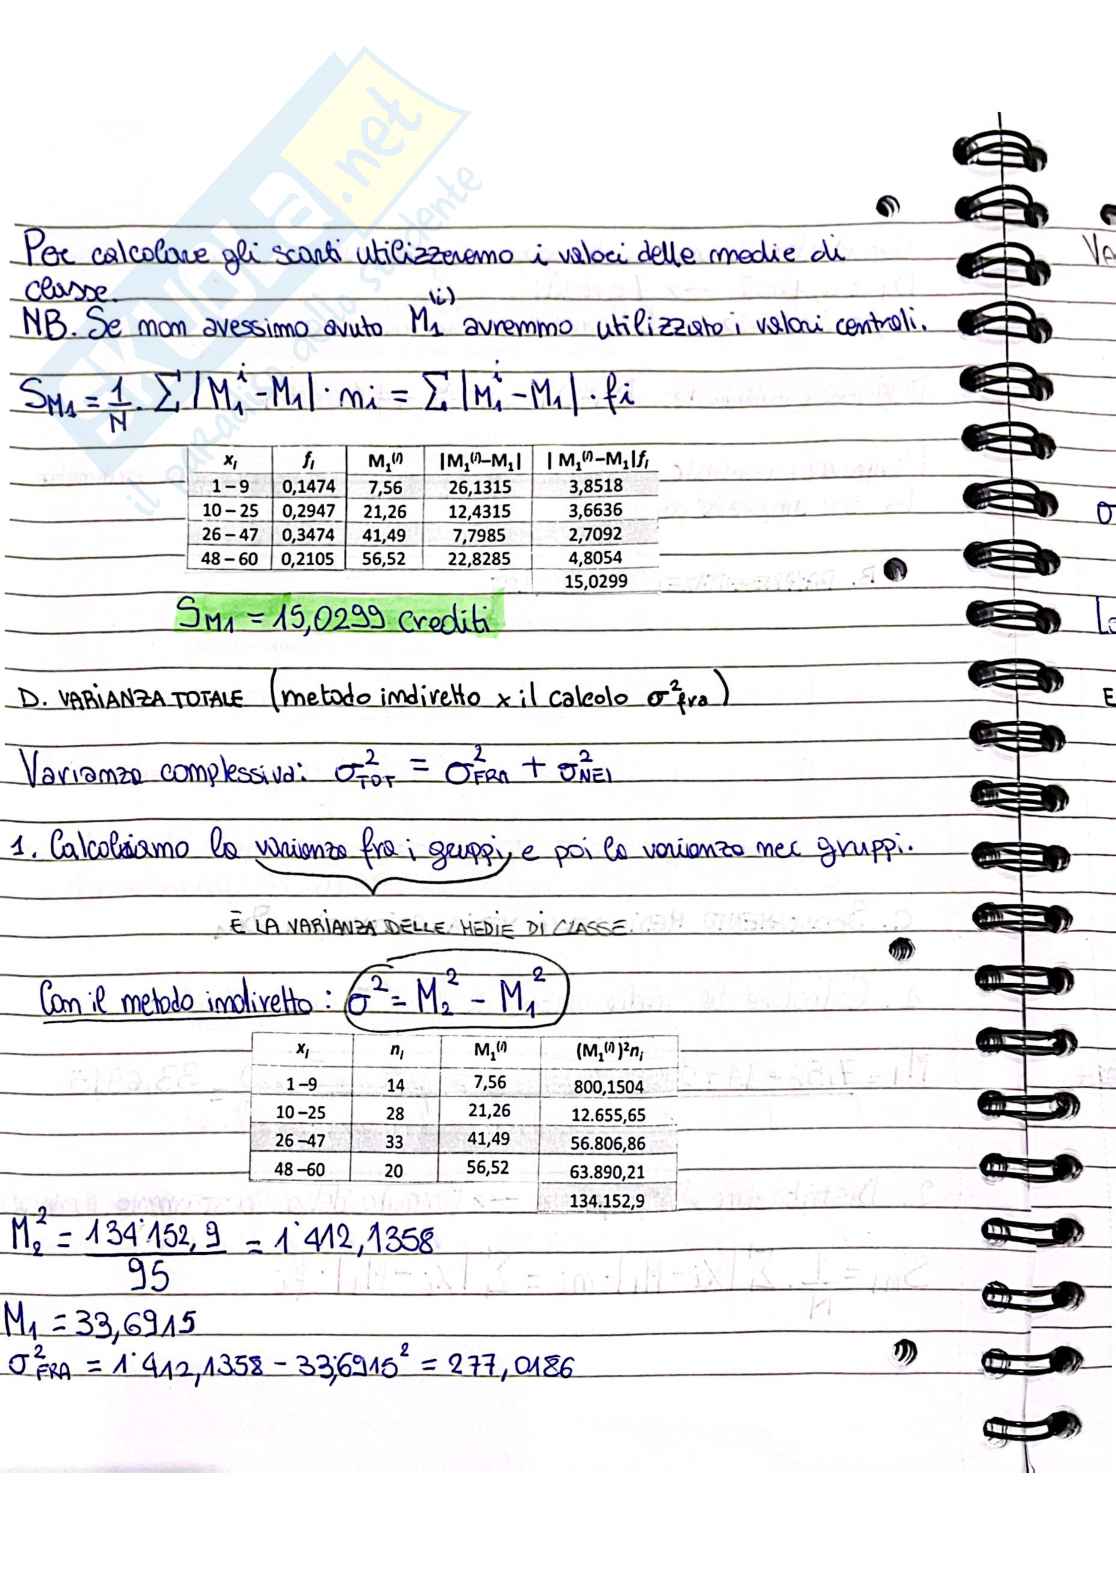 SKUOLA.net
il paradiso dello studente
Per calcolare gli scarti utilizzeremo i valori delle medie di
classe.
NB. Se non avessimo avuto M₁⁽ⁱ⁾ avremmo utilizzato i valori centrali.
S_M1 = 1/N · Σ |M₁ⁱ - M₁| · ni = Σ |M₁ⁱ - M₁| · fi
xᵢ fᵢ M₁⁽ⁱ⁾ |M₁⁽ⁱ⁾–M₁| | M₁⁽ⁱ⁾–M₁|fᵢ
1 – 9 0,1474 7,56 26,1315 3,8518
10 – 25 0,2947 21,26 12,4315 3,6636
26 – 47 0,3474 41,49 7,7985 2,7092
48 – 60 0,2105 56,52 22,8285 4,8054
15,0299
S_M1 = 15,0299 crediti
D. VARIANZA TOTALE (metodo indiretto x il calcolo σ²fra)
Varianza complessiva: σ²TOT = σ²FRA + σ²NEI
1. Calcoliamo la varianza fra i gruppi, e poi la varianza nei gruppi.
È LA VARIANZA DELLE MEDIE DI CLASSE.
Con il metodo indiretto: σ² = M₂² - M₁²
xᵢ nᵢ M₁⁽ⁱ⁾ (M₁⁽ⁱ⁾)²nᵢ
1 –9 14 7,56 800,1504
10 –25 28 21,26 12.655,65
26 –47 33 41,49 56.806,86
48 –60 20 56,52 63.890,21
134.152,9
M₂² = 134˙152,9 / 95 = 1˙412,1358
M₁ = 33,6915
σ²FRA = 1˙412,1358 - 33,6915² = 277,0186